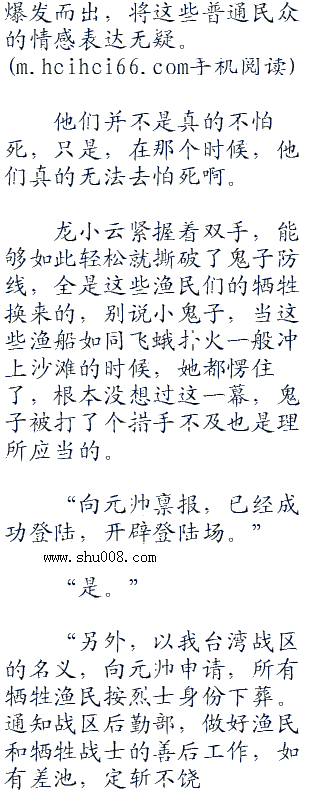 爆发而出，将这些普通民众
的情感表达无疑。
(m.hcihci66.com手机阅读)
他们并不是真的不怕
死，只是，在那个时候，他
们真的无法去怕死啊。
龙小云紧握着双手，能
够如此轻松就撕破了鬼子防
线，全是这些渔民们的牺牲
换来的，别说小鬼子，当这
些渔船如同飞蛾扑火一般冲
上沙滩的时候，她都愣住
了，根本没想过这一幕，鬼
子被打了个措手不及也是理
所应当的。
“向元帅禀报，已经成
功登陆，开辟登陆场。”
www.shu008.com
“是。”
“另外，以我台湾战区
的名义，向元帅申请，所有
牺牲渔民按烈士身份下葬。
通知战区后勤部，做好渔民
和牺牲战士的善后工作，如
有差池，定斩不饶